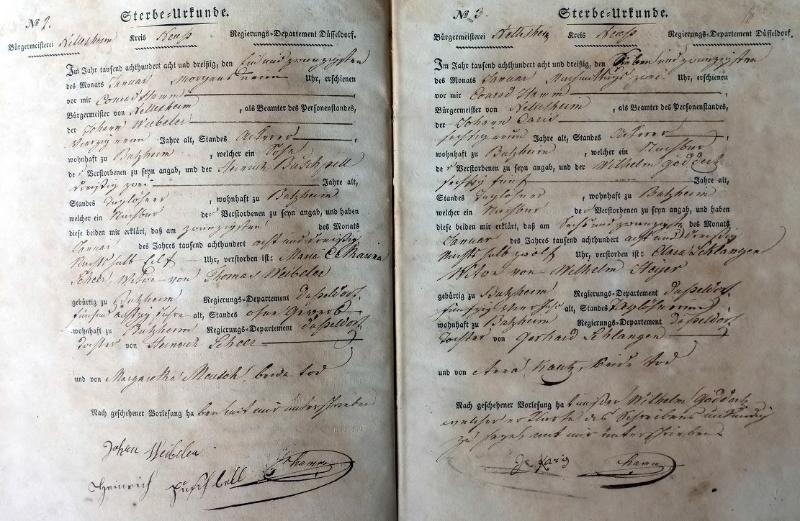 No 2.
Sterbe-Urkunde.
Bürgermeisterei Nettesheim Kreis Neuss Regierungs-Departement Düsseldorf.
Im Jahr tausend achthundert acht und dreißig, den ein und zwanzigsten
des Monats Januar Morgens neun Uhr, erschienen
vor mir Conrad Hamm
Bürgermeister von Nettesheim, als Beamter des Personenstandes,
der Johann Weibeler
vierzig neun Jahre alt, Standes Ackerer,
wohnhaft zu Butzheim, welcher ein Sohn
der Verstorbenen zu seyn angab, und der Heinrich
dreißig zwei Jahre alt,
Standes Taglöhner, wohnhaft zu Butzheim
welcher ein Nachbar der Verstorbenen zu seyn angab, und haben
diese beiden mir erklärt, daß am zwanzigsten des Monats
Januar des Jahres tausend achthundert acht und dreißig
Nachts halb elf Uhr, verstorben ist: Maria
Scheer Witwe von Thomas Weibeler
gebürtig zu Butzheim Regierungs-Departement Düsseldorf
fünf und achtzig Jahre alt, Standes ohne Gewerb
wohnhaft zu Butzheim Regierungs-Departement Düsseldorf
Tochter von Heinrich Scheer
und von Margaretha Meusch beide tod
Nach geschehener Vorlesung haben mit mir unterschrieben
Johan Weibeler
Heinrich Hamm
No 3.
Sterbe-Urkunde.
Bürgermeisterei Nettesheim Kreis Neuss Regierungs-Departement Düsseldorf.
Im Jahr tausend achthundert acht und dreißig, den sieben und zwanzigsten
des Monats Januar Nachmittags zwei Uhr, erschienen
vor mir Conrad Hamm
Bürgermeister von Nettesheim, als Beamter des Personenstandes,
der Johann
sechzig neun Jahre alt, Standes Ackerer,
wohnhaft zu Butzheim, welcher ein Nachbar
der Verstorbenen zu seyn angab, und der Wilhelm Göddertz
sechzig fünf Jahre alt,
Standes Taglöhner, wohnhaft zu Butzheim
welcher ein Nachbar der Verstorbenen zu seyn angab, und haben
diese beiden mir erklärt, daß am sechs und zwanzigsten des Monats
Januar des Jahres tausend achthundert acht und dreißig
Nachts halb zwölf Uhr, verstorben ist: Clara Schlangen
Witwe von Wilhelm
gebürtig zu Butzheim Regierungs-Departement Düsseldorf
alt, Standes Taglöhnerin
wohnhaft zu Butzheim Regierungs-Departement Düsseldorf
Tochter von Gerhard Schlangen
und von Anna Kautz, beide tod
Nach geschehener Vorlesung hat außer Wilhelm Göddertz
welcher erklärte des Schreibens unkundig
zu seyn mit mir unterschrieben
Hamm